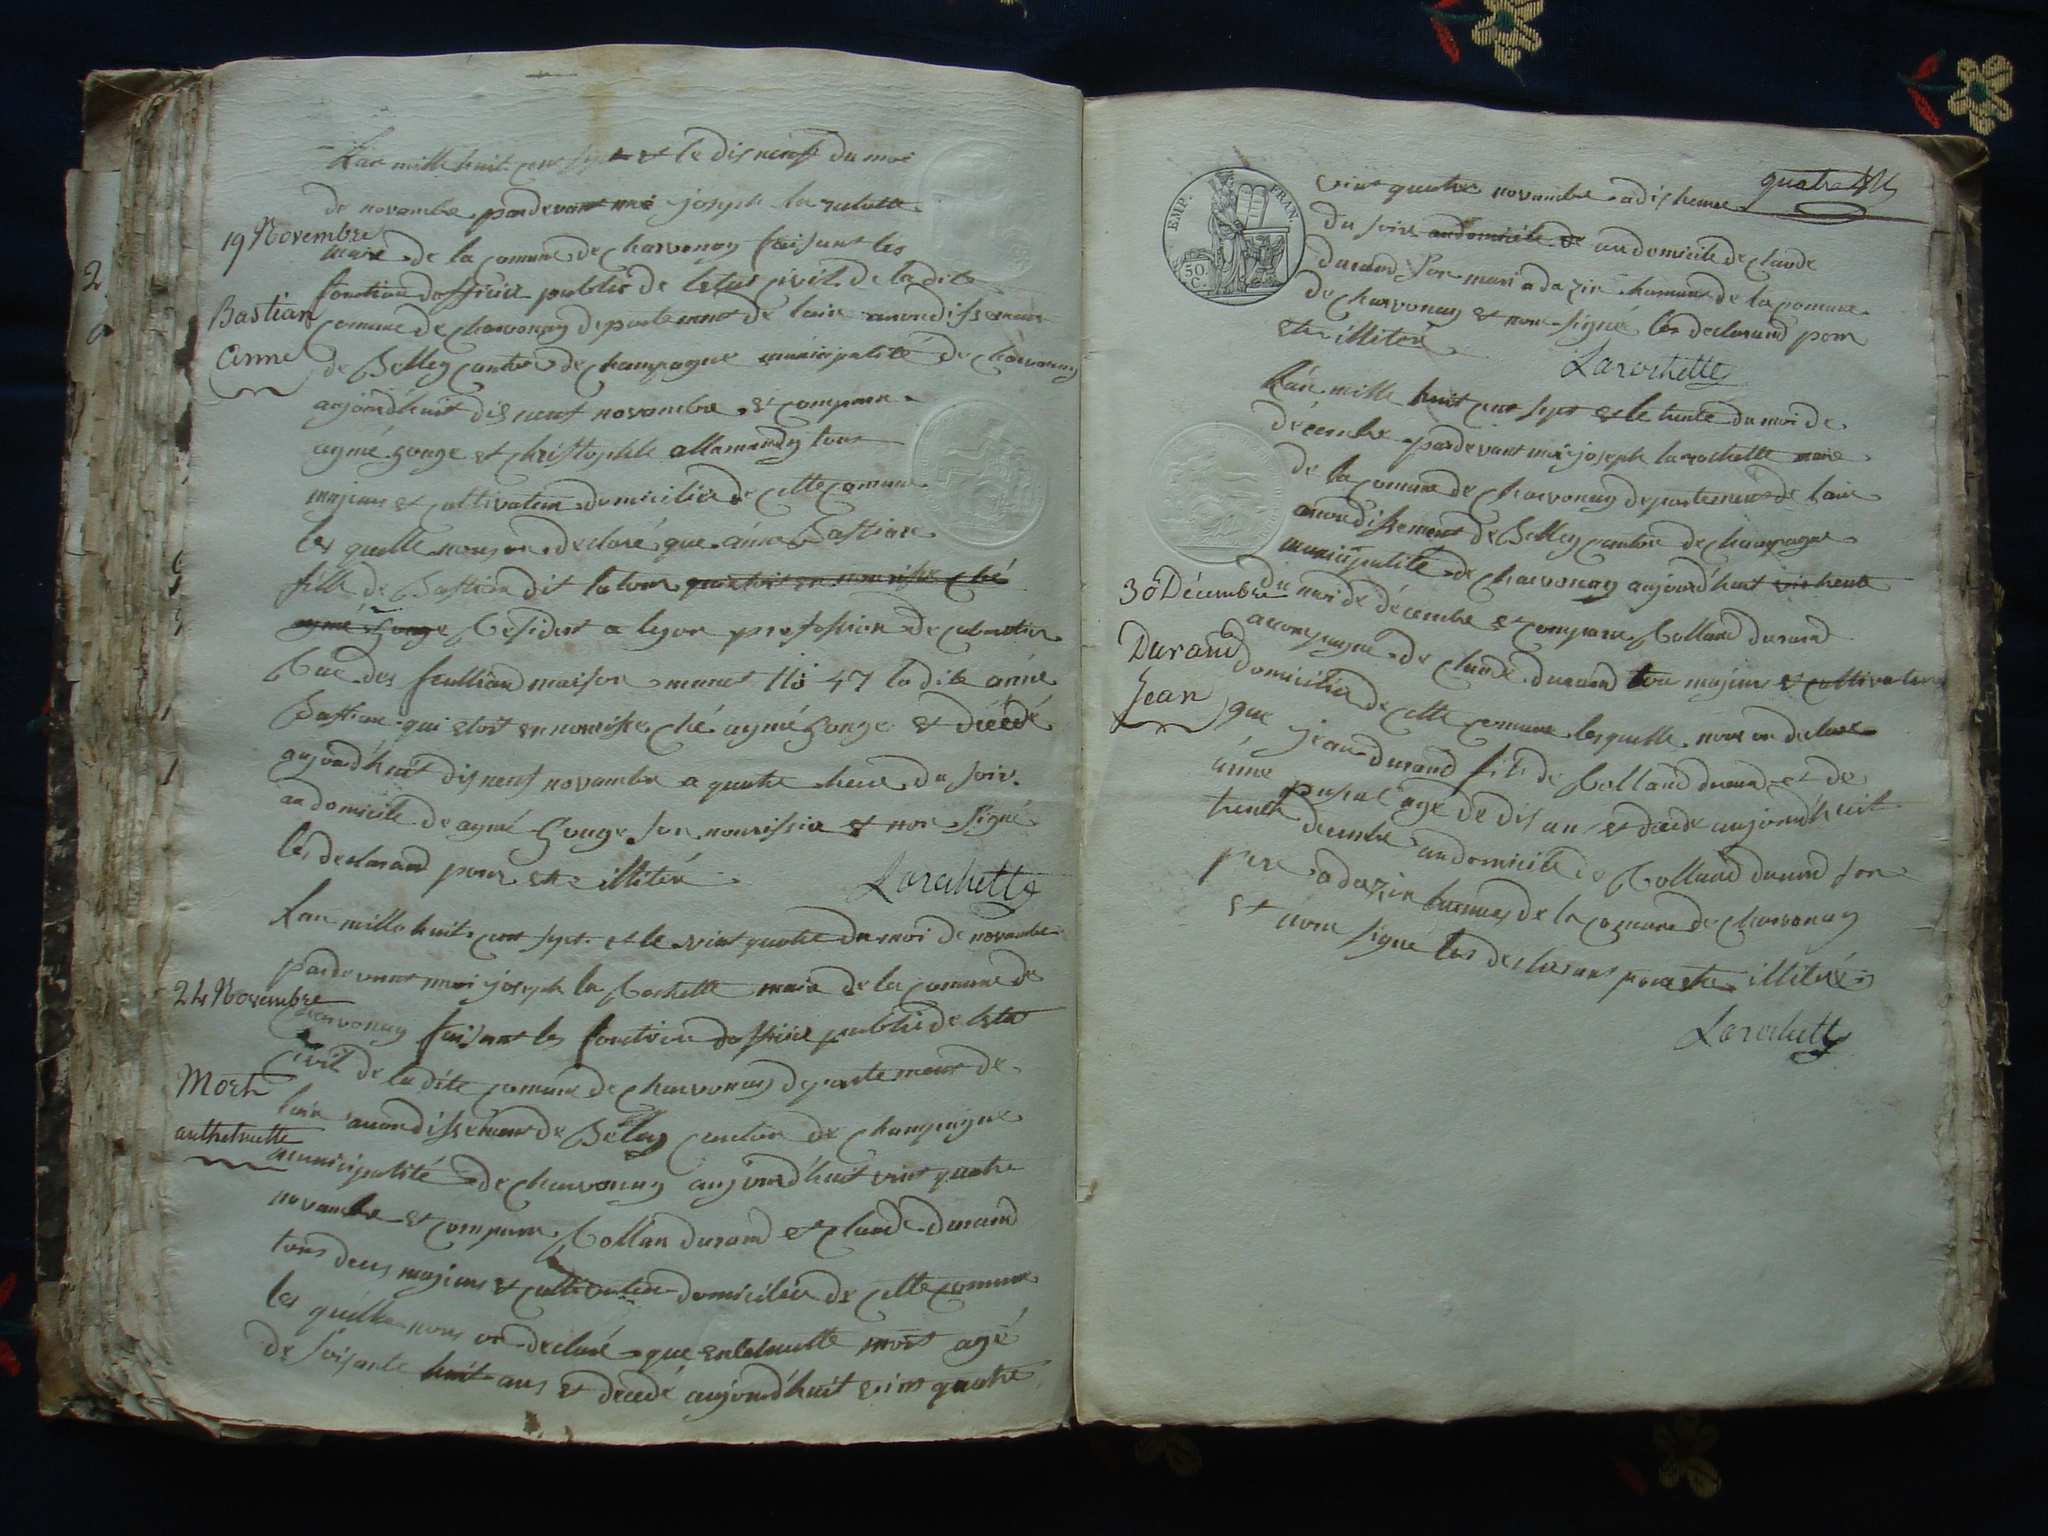 L'an mille huit cent sept et le dis neuf du moi
de novembre pardevant moi joseph la rochette
maire de la comune de charvonay faisant les
fonction dofficier public de letat civil de la dite
comune de charvonay departement de lain arondissement
de Belley canton de champagne municipalité de charvonay
aujourdhuit dis neuf novambre et comparu
aymé gonge et christophle allamandy tous
majeur et cultivateur domicilié de cette comune
les quelle nous on declaré que anne Bastian
fille de Bastian dit latour qui etoit en nourisse ché
aymé gonge Resident a lyon profession de
Rue des feulliand maison numero 47 la dite anne
Bastian qui etoit en nourisse ché aymé gonge et décédé
aujourdhuit dis neuf novambre a quatre heure du soir
au domicile de aymé gonge son nourissie et non signé
les declarand pour etre illiteré
Larochette
19 Novembre
Bastian
Anne
L'an mille huit cent sept et le vint quatre du moi de novambre
pardevant moi joseph la Rochette maire de la comune de
charvonay faisant les fonction dofficier public de letat
civil de la dite comune de charvonay departement de
lain arondissement de Beley canton de champagne
municipalité de charvonay aujourdhuit vint quatre
novambre et comparu Rollan durand et claude durand
tous deus majeur et cultivateur domicilié de cette comune
les quelle nous on declaré que entelmette moet agé
de soisante huit ans et décedé aujourdhuit vint quatre
24 Novembre
Moet
anthelmette
quatre
vint quatre novambre a dis heure
du soir au domicile de au domicile de claude
durand son mari a dazin hameau de la comune
de charvonay et non signé les declarand pour
etre illiteré
Larochette
L'an mille huit cent sept et le trente du moi de
décembre pardevant moi joseph la rochette maire
de la comune de charvonay departement de lain
arondissement de Belley canton de champagne
municipalité de charvonay aujourdhuit trente
du moi de décembre et comparu Rolland durand
acompagné de claude durand tou majeur et cultivateur
domicilié de cette comune lesquelle nous on declaré
que jean durand fils de Rolland durand et de
anne agé de dis an et décédé aujourdhuit
trente decembre au domicile de Rolland durand son
pere a dazin hameau de la comune de charvonay
et non signé les declarant pour etre illiteré
Larochette
30 Décembre
Durand
Jean
EMP. FRAN.
50 C.